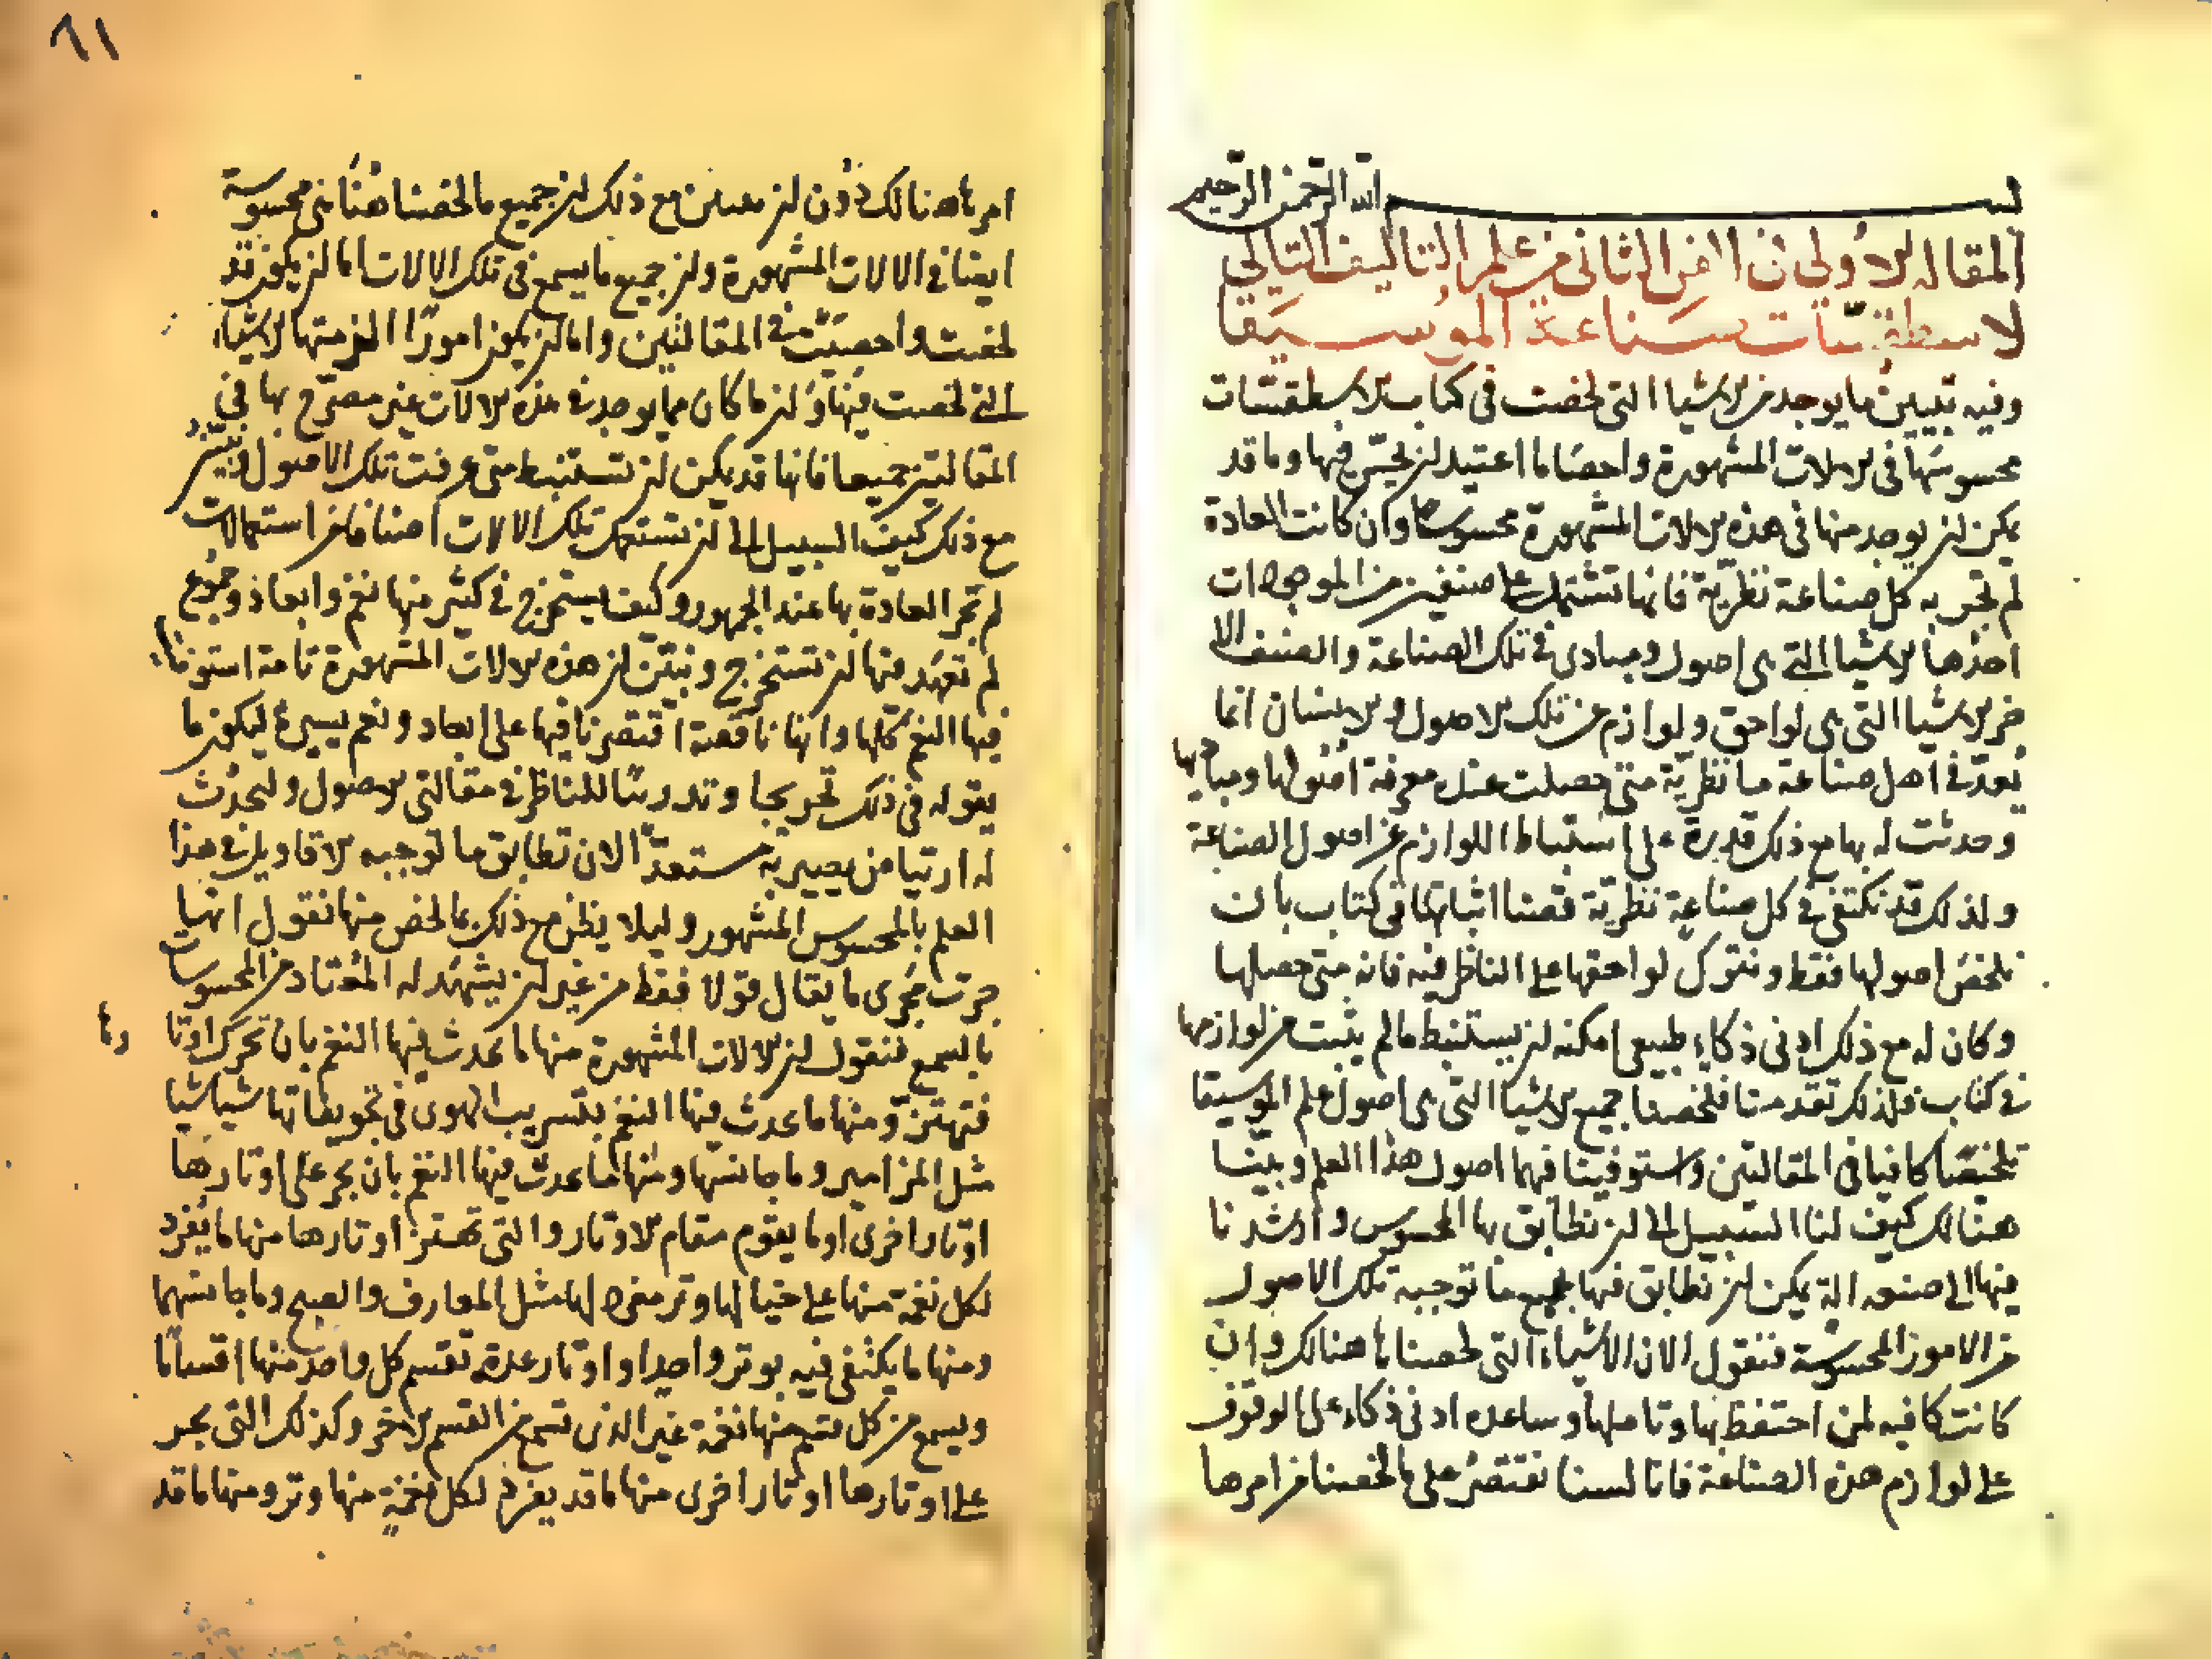 بسم الله الرحمن الرحيم
المقالة الاولى من الفن الثاني من علم التاليف التالي
لاسطقسات صناعة الموسيقا
وفيه تبيين ما يوجد من الاشيا التي لخصت في كتاب الاسطقسات
محسوسة في الالات المشهورة واحصا ما اعتيد ان يحس فيها وما قد
يمكن ان يوجد منها في هذه الالات المشهورة محسوسا وان كانت العادة
لم تجر به كل صناعة نظرية فانها تشتمل على صنفين من الموجودات
احدها الاشيا التي هي اصول ومبادى في تلك الصناعة والصنف الا
خر الاشيا التي هي لواحق ولوازم عن تلك الاصول والانسان انما
يعد في اهل صناعة ما نظرية متى حصلت عنده معرفة اصولها ومباديها
وحدثت له بها مع ذلك قدرة على استنباط اللوازم عن اصول الصناعة
ولذلك قد نكتفي في كل صناعة نظرية قصنا اثباتها في كتاب بان
نلخص اصولها فقط ونترك لواحقها على الناظر فيه فانه متى حصلها
وكان له مع ذلك ادنى ذكاء طبيعي امكنه ان يستنبط ما لم يثبت من لوازمها
في كتاب فلذلك تقدمنا فلخصنا جميع الاشيا التي هي اصول علم الموسيقا
تلخيصا كافيا في المقالتين واستوفينا فيهما اصول هذا العلم وبينا
هنالك كيف لنا السبيل الى ان نطابق بها المحسوس وارشدنا
فيها الى صنعه الة يمكن ان نطابق فيها جميع ما توجبه تلك الاصول
من الامور المحسوسة فنقول الان الاشياء التي لخصناها هنالك وان
كانت كافيه لمن احتفظ بها وتاملها وساعده ادنى ذكاء على الوقوف
على لوازم هذه الصناعة فانا لسنا نقتصر على ما لخصنا من امرها
٦١
امرها هنالك دون ان نبين مع ذلك ان جميع ما لخصنا هنا هي محسوسة
ايضا في الالات المشهورة وان جميع ما يسمع في تلك الالات اما ان يكون قد
لخصت واحصيت في المقالتين واما ان يكون امورا الزمتها الاشياء
التي لخصت فيها وان ما كان مما يوجد في هذه الالات غير مصرح بها في
المقالتين جميعا فانها قد يمكن ان تستنبط متى عرفت تلك الاصول ونبين
مع ذلك كيف السبيل الى ان تستعمل تلك الالات اصنافا من استعمالات
لم تجر العادة بها عند الجمهور وكيف يستخرج في كثير منها نغم وابعاد وجموع
لم تعهد منها ان تستخرج ونبين ان هذه الالات المشهورة تامة استوفنا
فيها النغم كلها وانها ناقصة اقتصرنا فيها على ابعاد ونغم يسيرة ليكون ما
يقوله في ذلك تخريجا وتدريبا للناظر في مقالتي الاصول وليحدث
له ارتياض يصير به مستعدا لان تطابق ما توجبه الاقاويل في هذا
العلم بالمحسوس المشهور وليلا يظن مع ذلك بما لخص منها نقول انها
جرت مجرى ما يقال قولا فقط من غير ان يشهد له المعتاد من المحسوسات
بالسمع فنقول ان الالات المشهورة منها ما يحدث فيها النغم بان تحرك اوتا
رها
فتهتز ومنها ما يحدث فيها النغم بتسريب الهوى في تجويفاتها شيا شيا
مثل المزامير وما جانسها ومنها ما يحدث فيها النغم بان يجر على اوتارها
اوتار اخرى او ما يقوم مقام الاوتار والتي تهتز اوتارها منها ما يفرد
لكل نغمة منها على حيالها وتر مفرد لها مثل المعازف والصنج وما جانسهما
ومنها ما يكتفى فيه بوتر واحد او اوتار عدة تقسم كل واحد منها اقساما
ويسمع من كل قسم منها نغمة غير الذى تسمع من القسم الاخر وكذلك التي يجر
على اوتارها اوتار اخرى منها ما قد يفرد لكل نغمة منها وتر ومنها ما قد